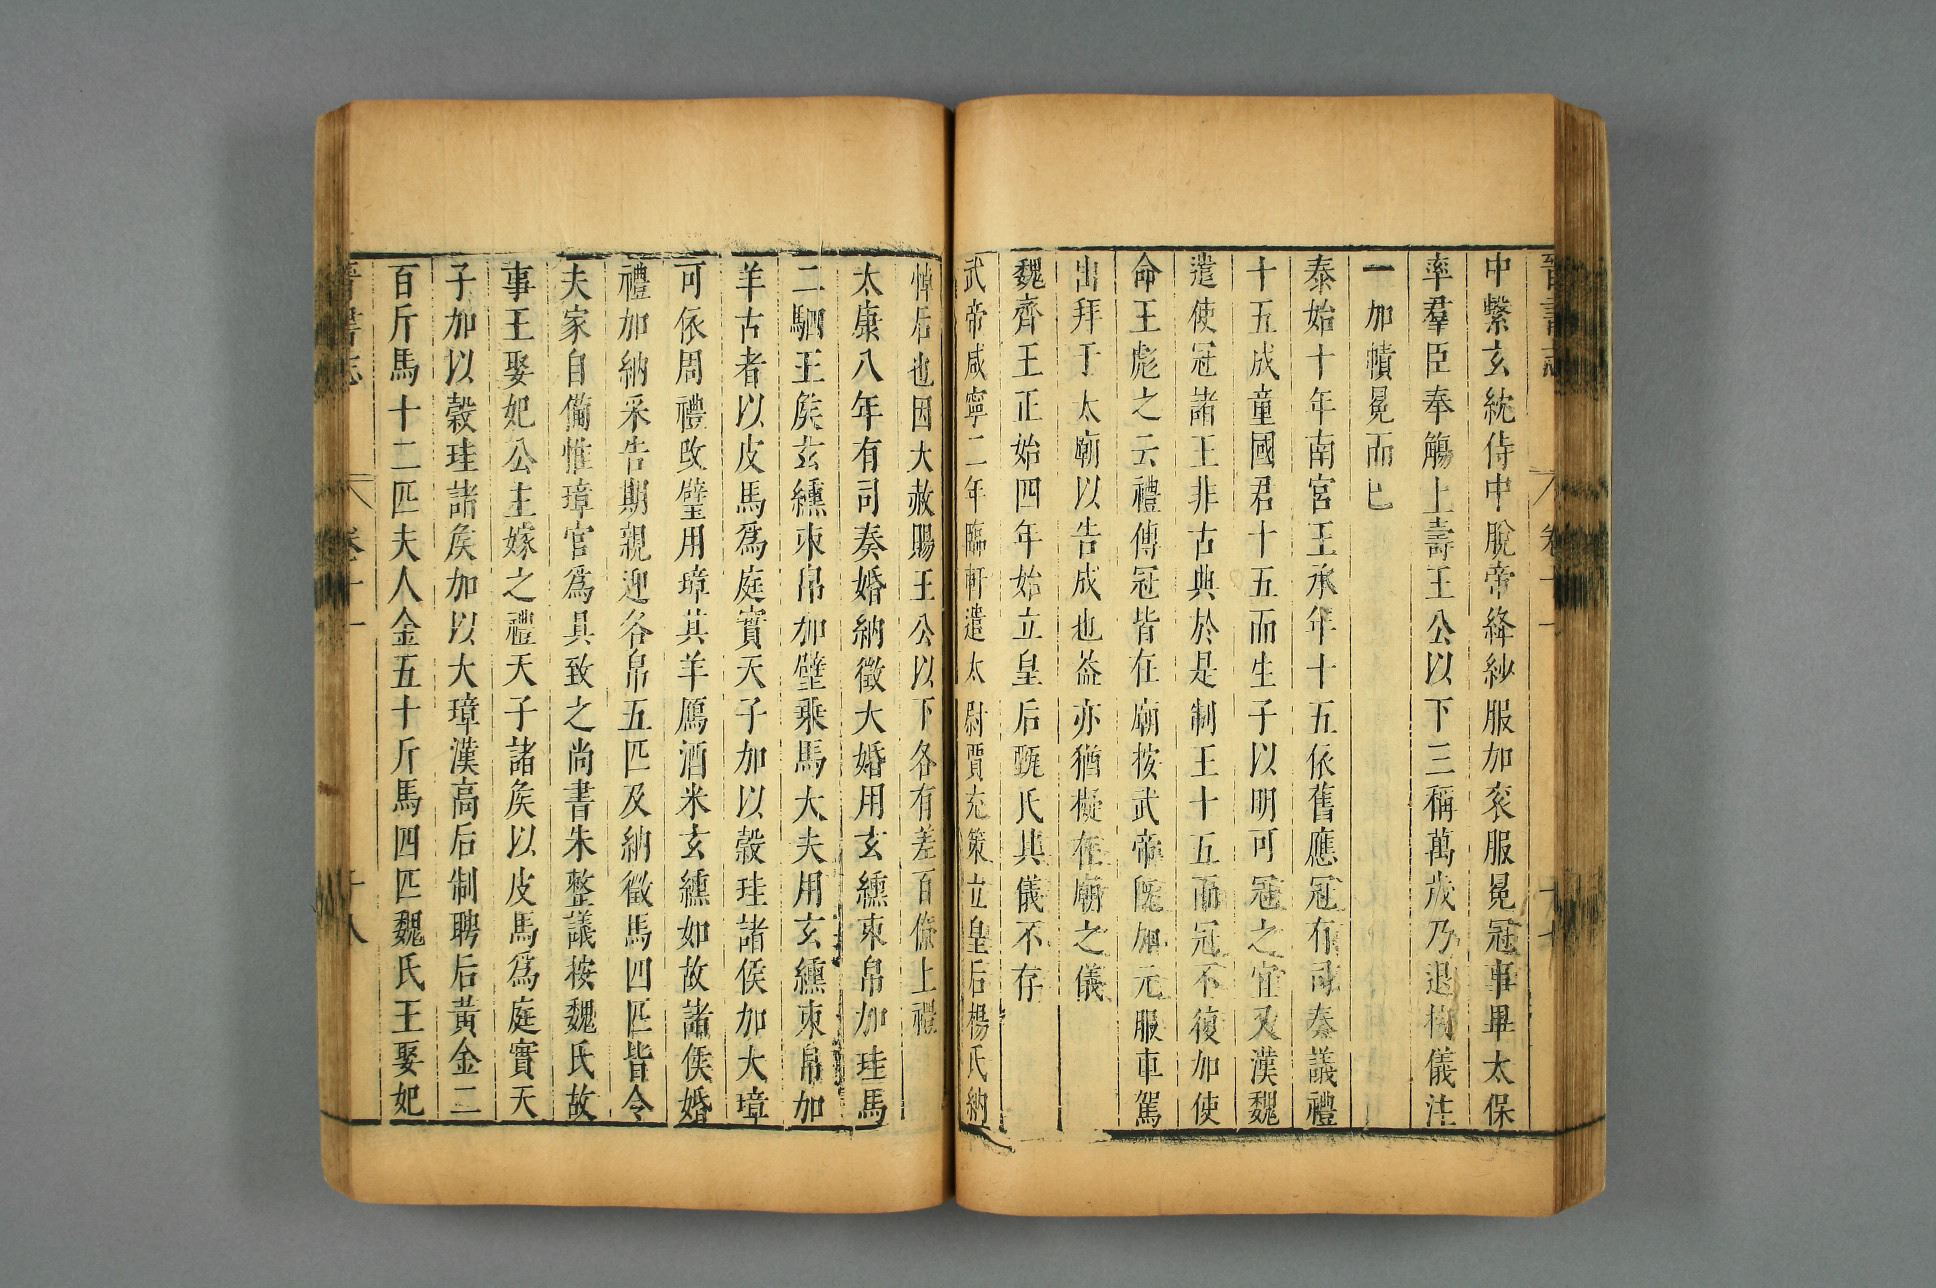 晉書志 卷十一 十七
中繫玄紞侍中脫帝絳紗服加衮服冕冠事畢太保
率羣臣奉觴上壽王公以下三稱萬歲乃退按儀注
一加幘冕而已
泰始十年南宮王承年十五依舊應冠有司奏議禮
十五成童國君十五而生子以明可冠之宜又漢魏
遣使冠諸王非古典於是制王十五而冠不復加使
命王彪之云禮傳冠皆在廟按武帝旣加元服車駕
出拜于太廟以告成也葢亦猶擬在廟之儀
魏齊王正始四年始立皇后甄氏其儀不存
武帝咸寧二年臨軒遣太尉賈充策立皇后楊氏納
悼后也因大赦賜王公以下各有差百僚上禮
太康八年有司奏婚納徵大婚用玄纁束帛加珪馬
二駟王矦玄纁束帛加璧乘馬大夫用玄纁束帛加
羊古者以皮馬爲庭實天子加以穀珪諸侯加大璋
可依周禮改璧用璋其羊鴈酒米玄纁如故諸侯婚
禮加納采告期親迎各帛五匹及納徵馬四匹皆令
夫家自備惟璋官爲具致之尚書朱整議按魏氏故
事王娶妃公主嫁之禮天子諸矦以皮馬爲庭實天
子加以穀珪諸矦加以大璋漢高后制聘后黃金二
百斤馬十二匹夫人金五十斤馬四匹魏氏王娶妃
晉書志 卷十一 十八